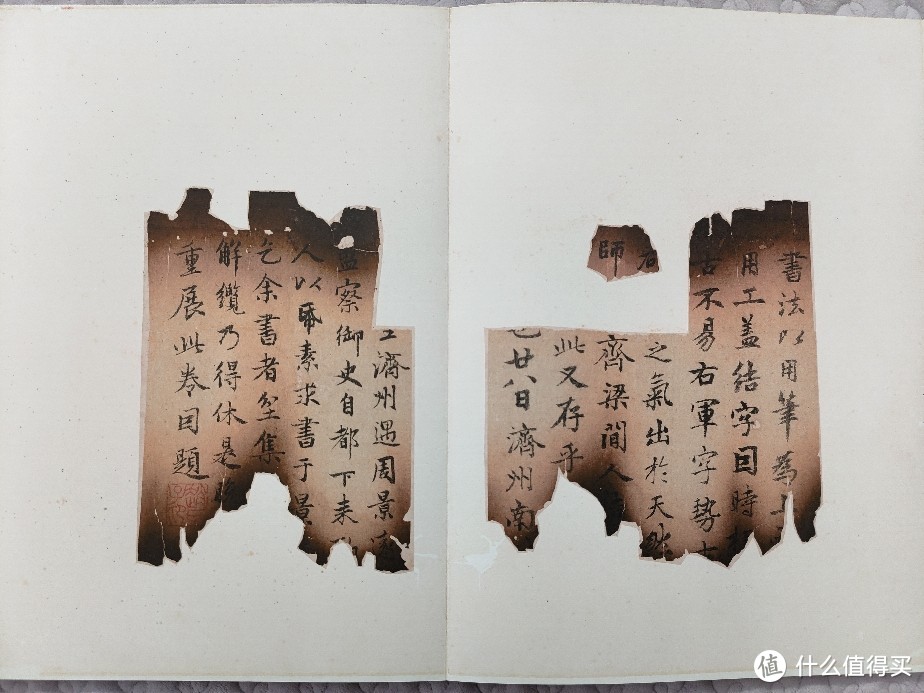 書法以用筆為上
用工盖結字囙時
古不易右軍字勢
之氣出於天然
師
齊梁間人
此又存乎
廿八日濟州南
濟州遇周景
監察御史自都下来
人以帋素求書于景
乞余書者坌集
解纜乃得休是
重展此卷囙題
值 什么值得买